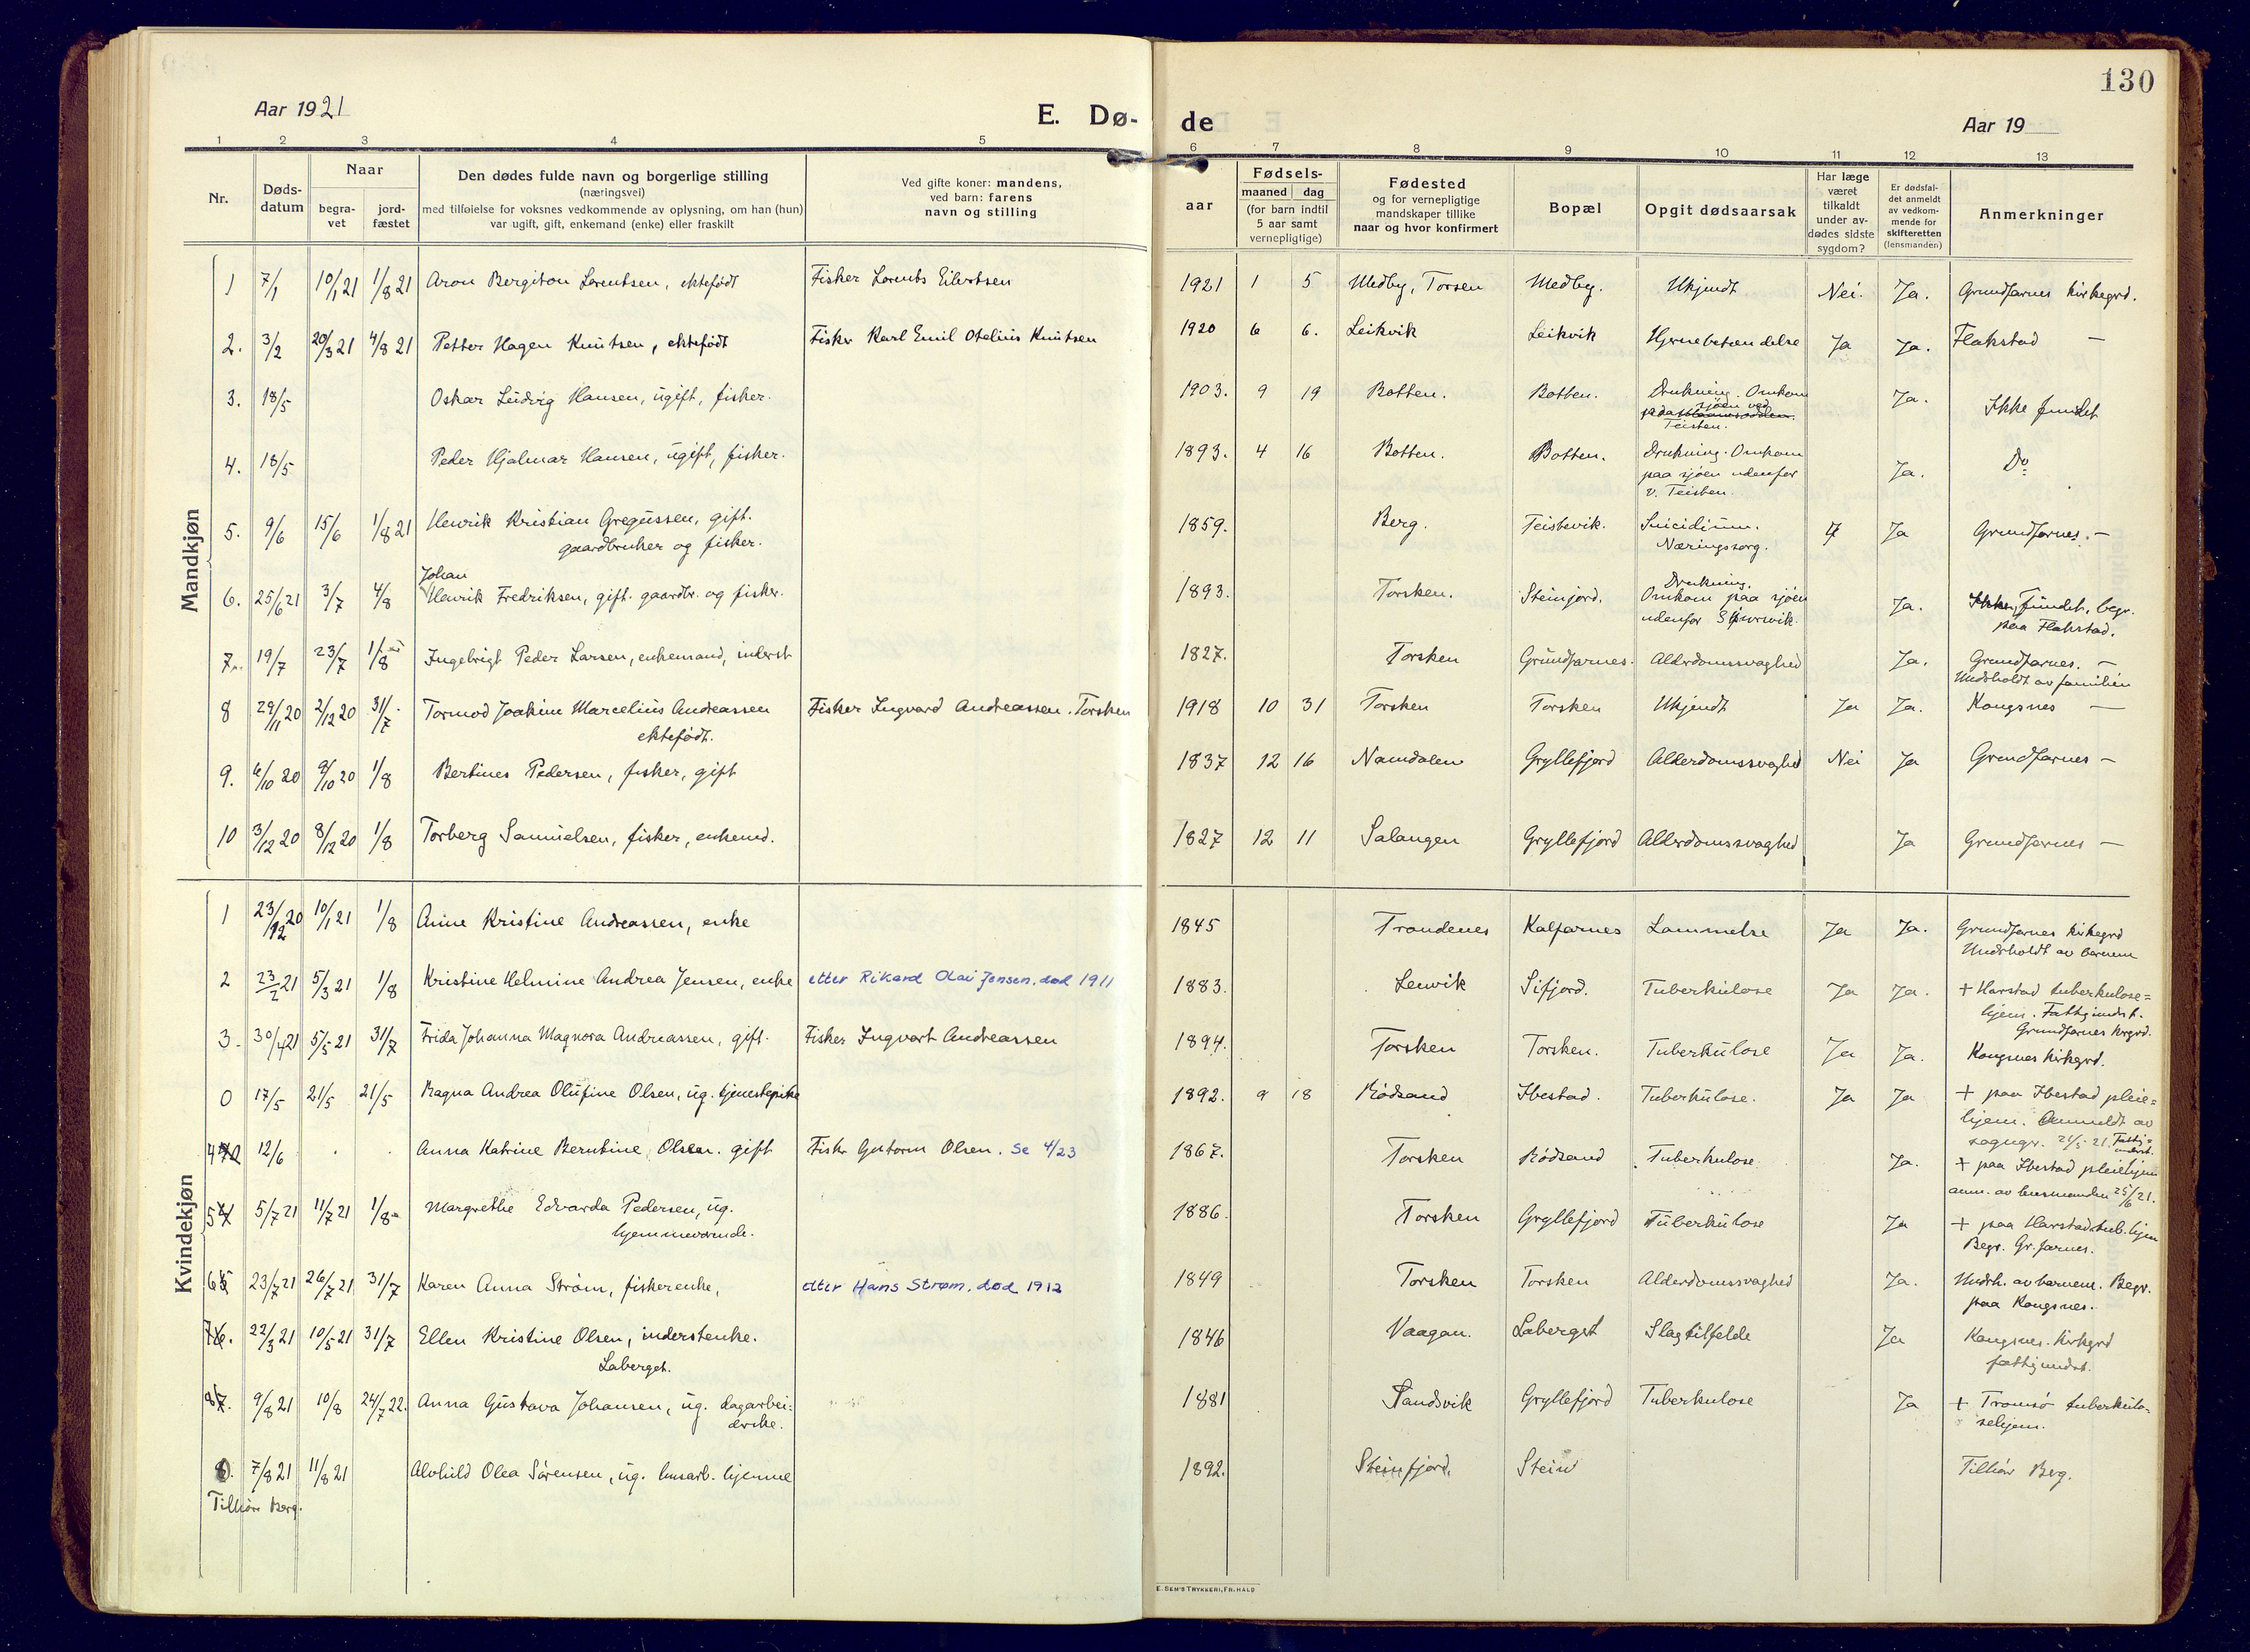 130
Aar 1921
E. Dø-
de
Aar 19
1 2 3 4 5 6 7 8 9 10 11 12 13
Nr.
Døds-
datum
Naar
begra-
vet
jord-
fæstet
Den dødes fulde navn og borgerlige stilling
(næringsvei)
med tilføielse for voksnes vedkommende av oplysning, om han (hun)
var ugift, gift, enkemand (enke) eller fraskilt
Ved gifte koner: mandens,
ved barn: farens
navn og stilling
aar
Fødsels-
maaned dag
(for barn indtil
5 aar samt
vernepligtige)
Fødested
og for vernepligtige
mandskaper tillike
naar og hvor konfirmert
Bopæl
Opgit dødsaarsak
Har læge
været
tilkaldt
under av-
dødes sidste
sygdom?
Er dødsfal-
det anmeldt
av vedkom-
mende for
skifteretten
(lensmanden)
Anmerkninger
Mandkjøn
1 7/1 10/1 21 1/8 21 Aron Bergiton Lorentsen, ektefødt Fisker Lorents Eilertsen 1921 1 5 Medby, Torsen Medby. Ukjendt Nei. Ja. Grundfarnes kirkegrd.
2. 3/2 20/3 21 4/8 21 Petter Hagen Knutsen, ektefødt Fisker Karl Emil Otelius Knutsen 1920 6 6. Leikvik Leikvik Hjernebetændelse Ja Ja. Flakstad —
3. 18/5 Oskar Ludvig Hansen, ugift, fisker. 1903. 9 19 Botten. Botten. Drukning. Omkom
sjøen ved
Teisten.
Ja. Ikke fundet
4. 18/5 Peder Hjalmar Hansen, ugift, fisker. 1893. 4 16 Botten. Botten. Drukning. Omkom
paa sjøen udenfor
v. Teisten.
Ja. Do
5. 9/6 15/6 1/8 21 Henrik Kristian Gregussen, gift.
gaardbruker og fisker.
1859. Berg. Teistevik. Suicidium.
Næringssorg.
Ja Grundfarnes. —
6. 25/6 21 3/7 4/8 Johan
Henrik Fredriksen, gift. gaardbr. og fisker. 1893. Torsken. Steinjord. Drukning.
Omkom paa sjøen
udenfor
Ja. Ikke fundet, begr.
paa Flakstad.
7. 19/7 23/7 1/8 Ingebrigt Peder Larsen, enkemand, inderst 1827. Torsken Grundfarnes. Alderdomssvaghed Ja. Grundfarnes. —
Undrholdt av familien
8 29/11 20 2/12 20 31/7 Tormod Joakim Marcelius Andreassen
ektefødt.
Fisker Ingvard Andreassen. Torsken 1918 10 31 Torsken Torsken Ukjendt Ja Ja. Kongsnes —
9. 6/10 20 9/10 20 1/8 Bertines Pedersen, fisker, gift 1837 12 16 Namdalen Gryllefjord Alderdomssvaghed Nei Ja Grundfarnes —
10 3/12 20 8/12 20 1/8 Torberg Samuelsen, fisker, enkemd. 1827 12 11 Salangen Gryllefjord Alderdomssvaghed Ja Grundfarnes —
Kvindekjøn
1 23/12 20 10/1 21 1/8 Anne Kristine Andreassen, enke 1845 Trondenes Kalfarnes Lammelse Ja Ja. Grundfarnes kirkegrd
Undrholdt av barnem
2 23/2 21 5/3 21 1/8 Kristine Helmine Andrea Jensen, enke etter Rikard Olai Jensen, død 1911 1883. Lenvik Sifjord. Tuberkulose Ja Ja. + Harstad tuberkulose=
hjem. Fattigundst.
Grundfarnes krgrd.
3. 30/4 21 5/5 21 31/7 Frida Johanna Magnora Andreassen, gift. Fisker Ingvart Andreassen 1894. Torsken Torsken. Tuberkulose Ja Ja. Kongsnes kirkgrd.
0 17/5 21/5 21/5 Ragna Andrea Olufine Olsen, ug. tjenestepike 1892. 9 18 Rödsand Ibestad. Tuberkulose. Ja Ja + paa Ibestad pleie=
hjem. Anmeldt av
sogngr. 21/5 21. Fattig=
underst.
4 12/6 Anna Katrine Berntine Olsen. gift Fisker Guttorm Olsen. Se 4/23 1867. Torsken Rödsand Tuberkulose Ja. + paa Ibestad pleiehjem
anm. av lensmanden 25/6 21.
5 5/7 21 11/7 21 1/8 Margrethe Edvarda Pedersen, ug.
hjemmeværende.
1886. Torsken Gryllefjord Tuberkulose Ja + paa Harstad tub. hjem
Begr. Gr. farnes.
6 23/7 21 26/7 21 31/7 Karen Anna Strøm, fiskerenke, etter Hans Strøm, død 1912 1849 Torsken Torsken Alderdomssvaghed Ja. Undrh. av barnem. Begr.
paa Kongsnes.
7 22/3 21 10/5 21 31/7 Ellen Kristine Olsen, inderstenke.
Laberget.
1846 Vaagan. Laberget Slagtilfelde Ja Kongsnes. kirkgrd
fattigundst.
8 9/8 21 10/8 24/7 22. Anna Gustava Johansen, ug. dagarbei=
derske.
1881 Sandsvik Gryllefjord Tuberkulose Ja + Tromsø tuberkulo=
sehjem.
0. 7/8 21 11/8 21 Alvhild Olea Sørensen, ug. husarb. hjemme 1892. Steinfjord. Stein Tilhør Berg.
Tilhøre Berg.
E. SEM'S TRYKKERI, FR.HALD